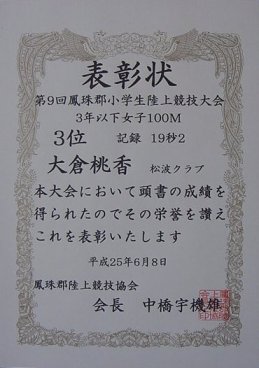 表彰状
第9回鳳珠郡小学生陸上競技大会
3年以下女子100M
3位 記録 19秒2
大倉桃香 松波クラブ
本大会において頭書の成績を
得られたのでその栄誉を讃え
これを表彰いたします
平成25年6月8日
鳳珠郡陸上競技協会
会長 中橋宇機雄